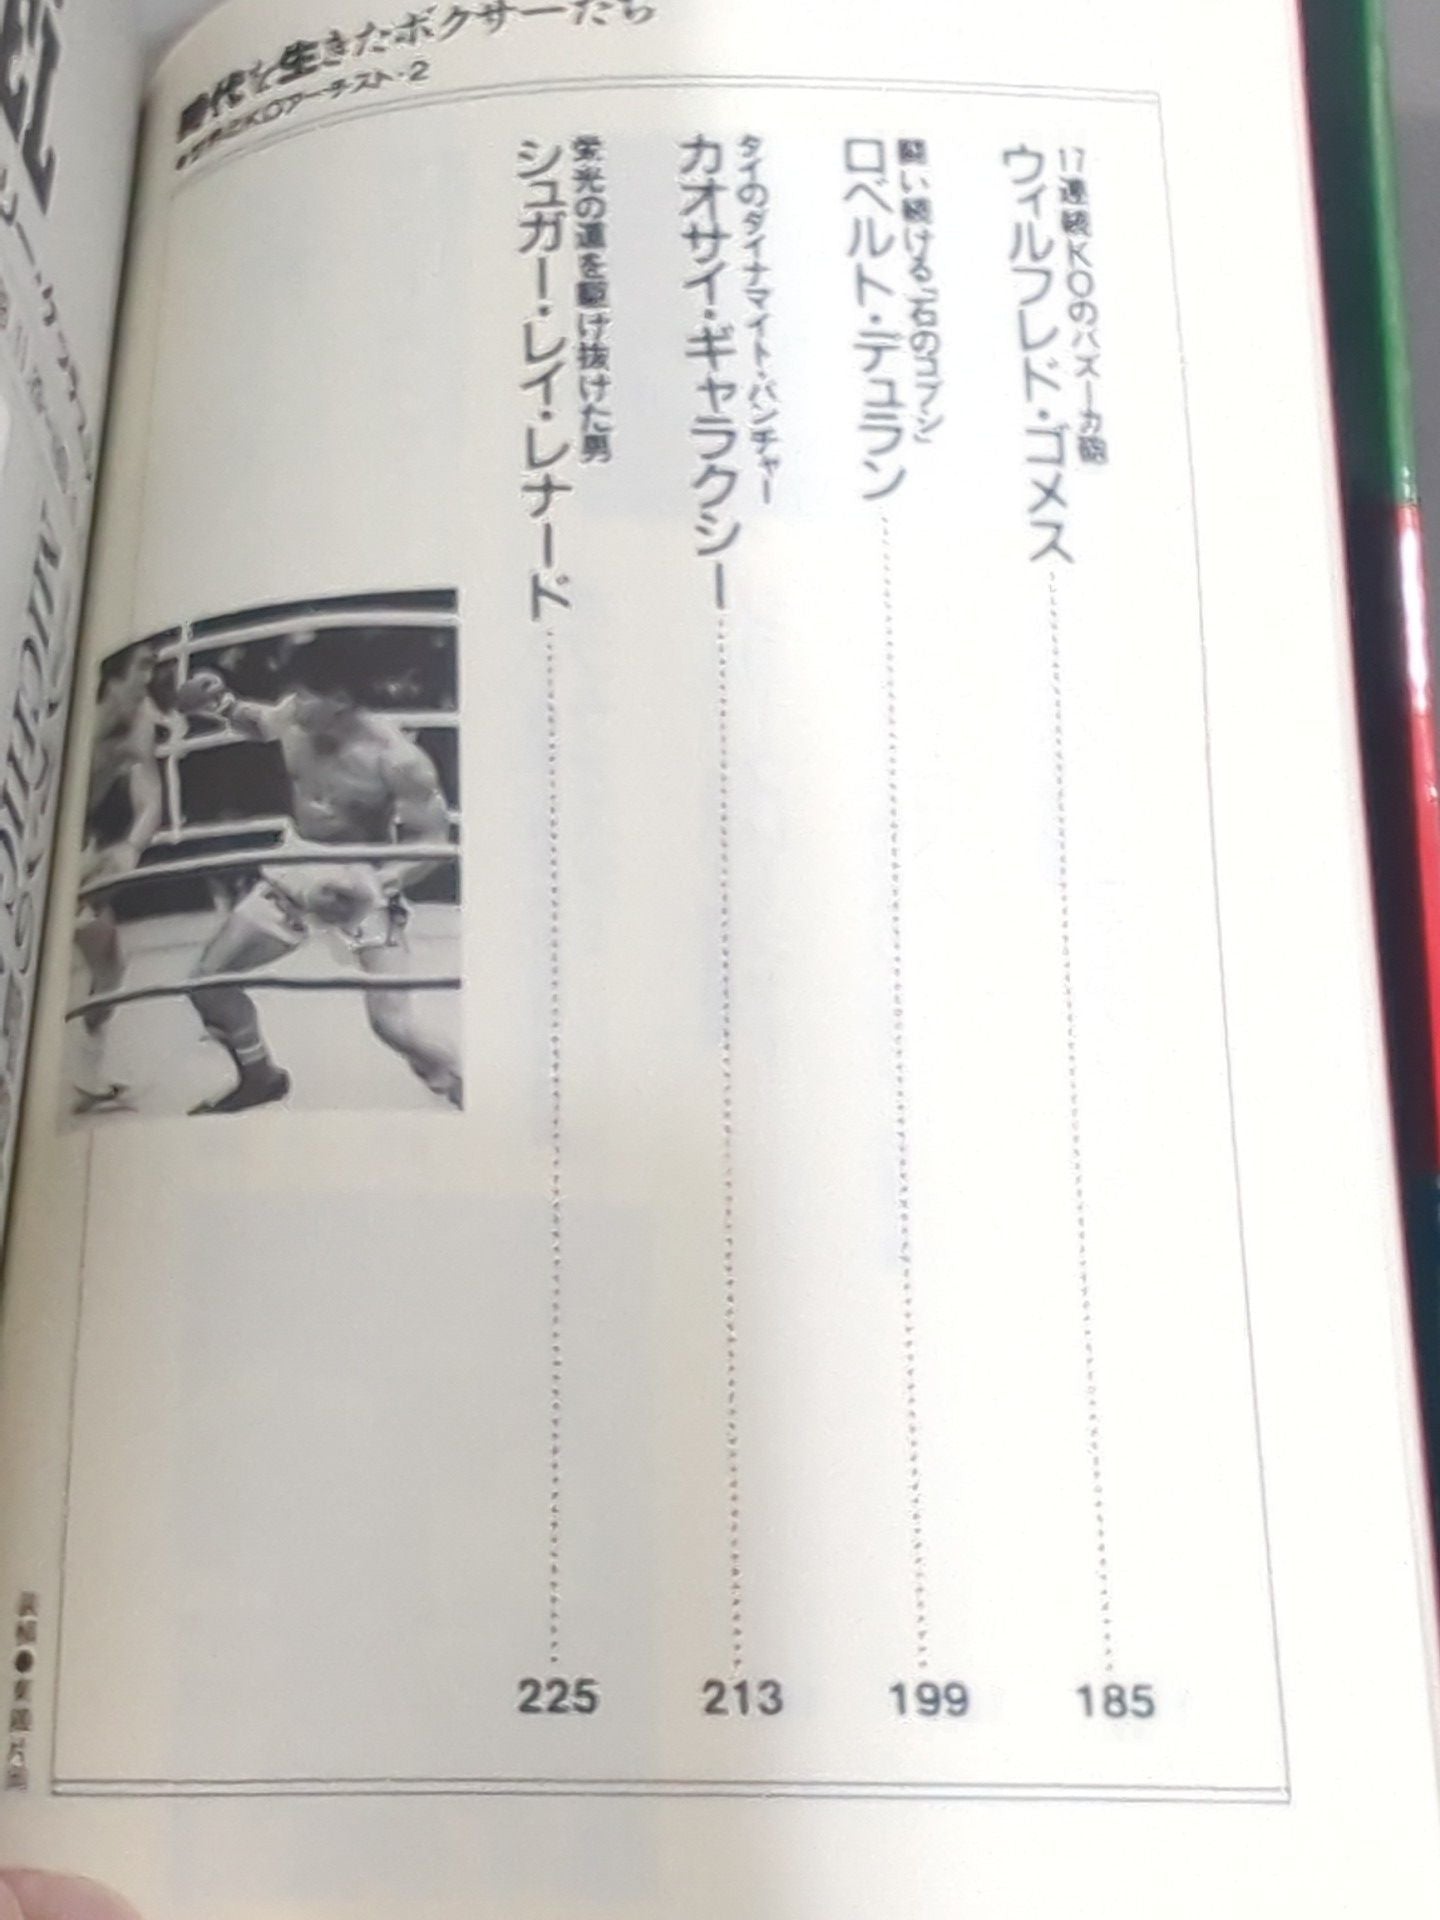 時代を生きたボクサーたち
●世界のKOアーチスト・2
17連続KOのバズーカ砲
ウィルフレド・ゴメス
185
闘い続ける「石のコブシ」
ロベルト・デュラン
199
タイのダイナマイト・パンチャー
カオサイ・ギャラクシー
213
栄光の道を駆け抜けた男
シュガー・レイ・レナード
225